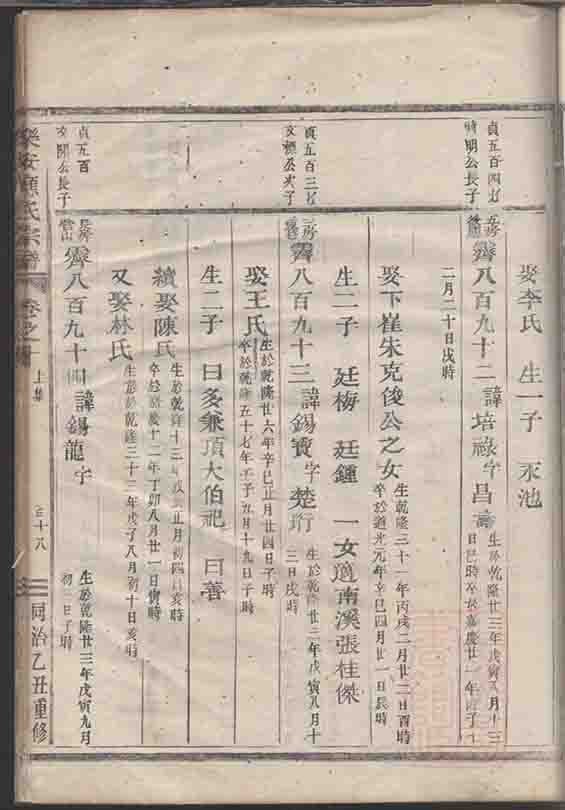 娶李氏 生一子 永池
貞五百四十
時明公長子
霽八百九十二 諱培祿字昌
生於乾隆廿三年戊寅八月十三
日巳時卒於嘉慶廿一年丙子十
二月二十日戌時
娶下崔朱克俊公之女
生乾隆三十一年丙戌二月廿二日酉時
卒於道光元年辛巳四月廿一日辰時
生二子 廷梅 廷鍾 一女適南溪張桂傑
貞五百三十
公次子
霽八百九十三 諱錫寶字楚珩
生於乾隆廿三年戊寅八月十
三日戌時
娶王氏
生於乾隆廿六年辛巳正月廿四日子時
卒於乾隆五十七年壬子五月十九日子時
生二子 曰多兼頂大伯祀 曰善
續娶陳氏
生於乾隆三十三年 正月初四日亥時
卒於嘉慶十二年丁卯八月廿一日寅時
又娶林氏
生於乾隆三十三年戊子八月初十日亥時
貞五百
公長子
霽八百九十四 諱錫龍字
生於乾隆廿三年戊寅九月
初三日子時
樂安 氏宗譜 卷之 上集 十八 同治乙丑重修